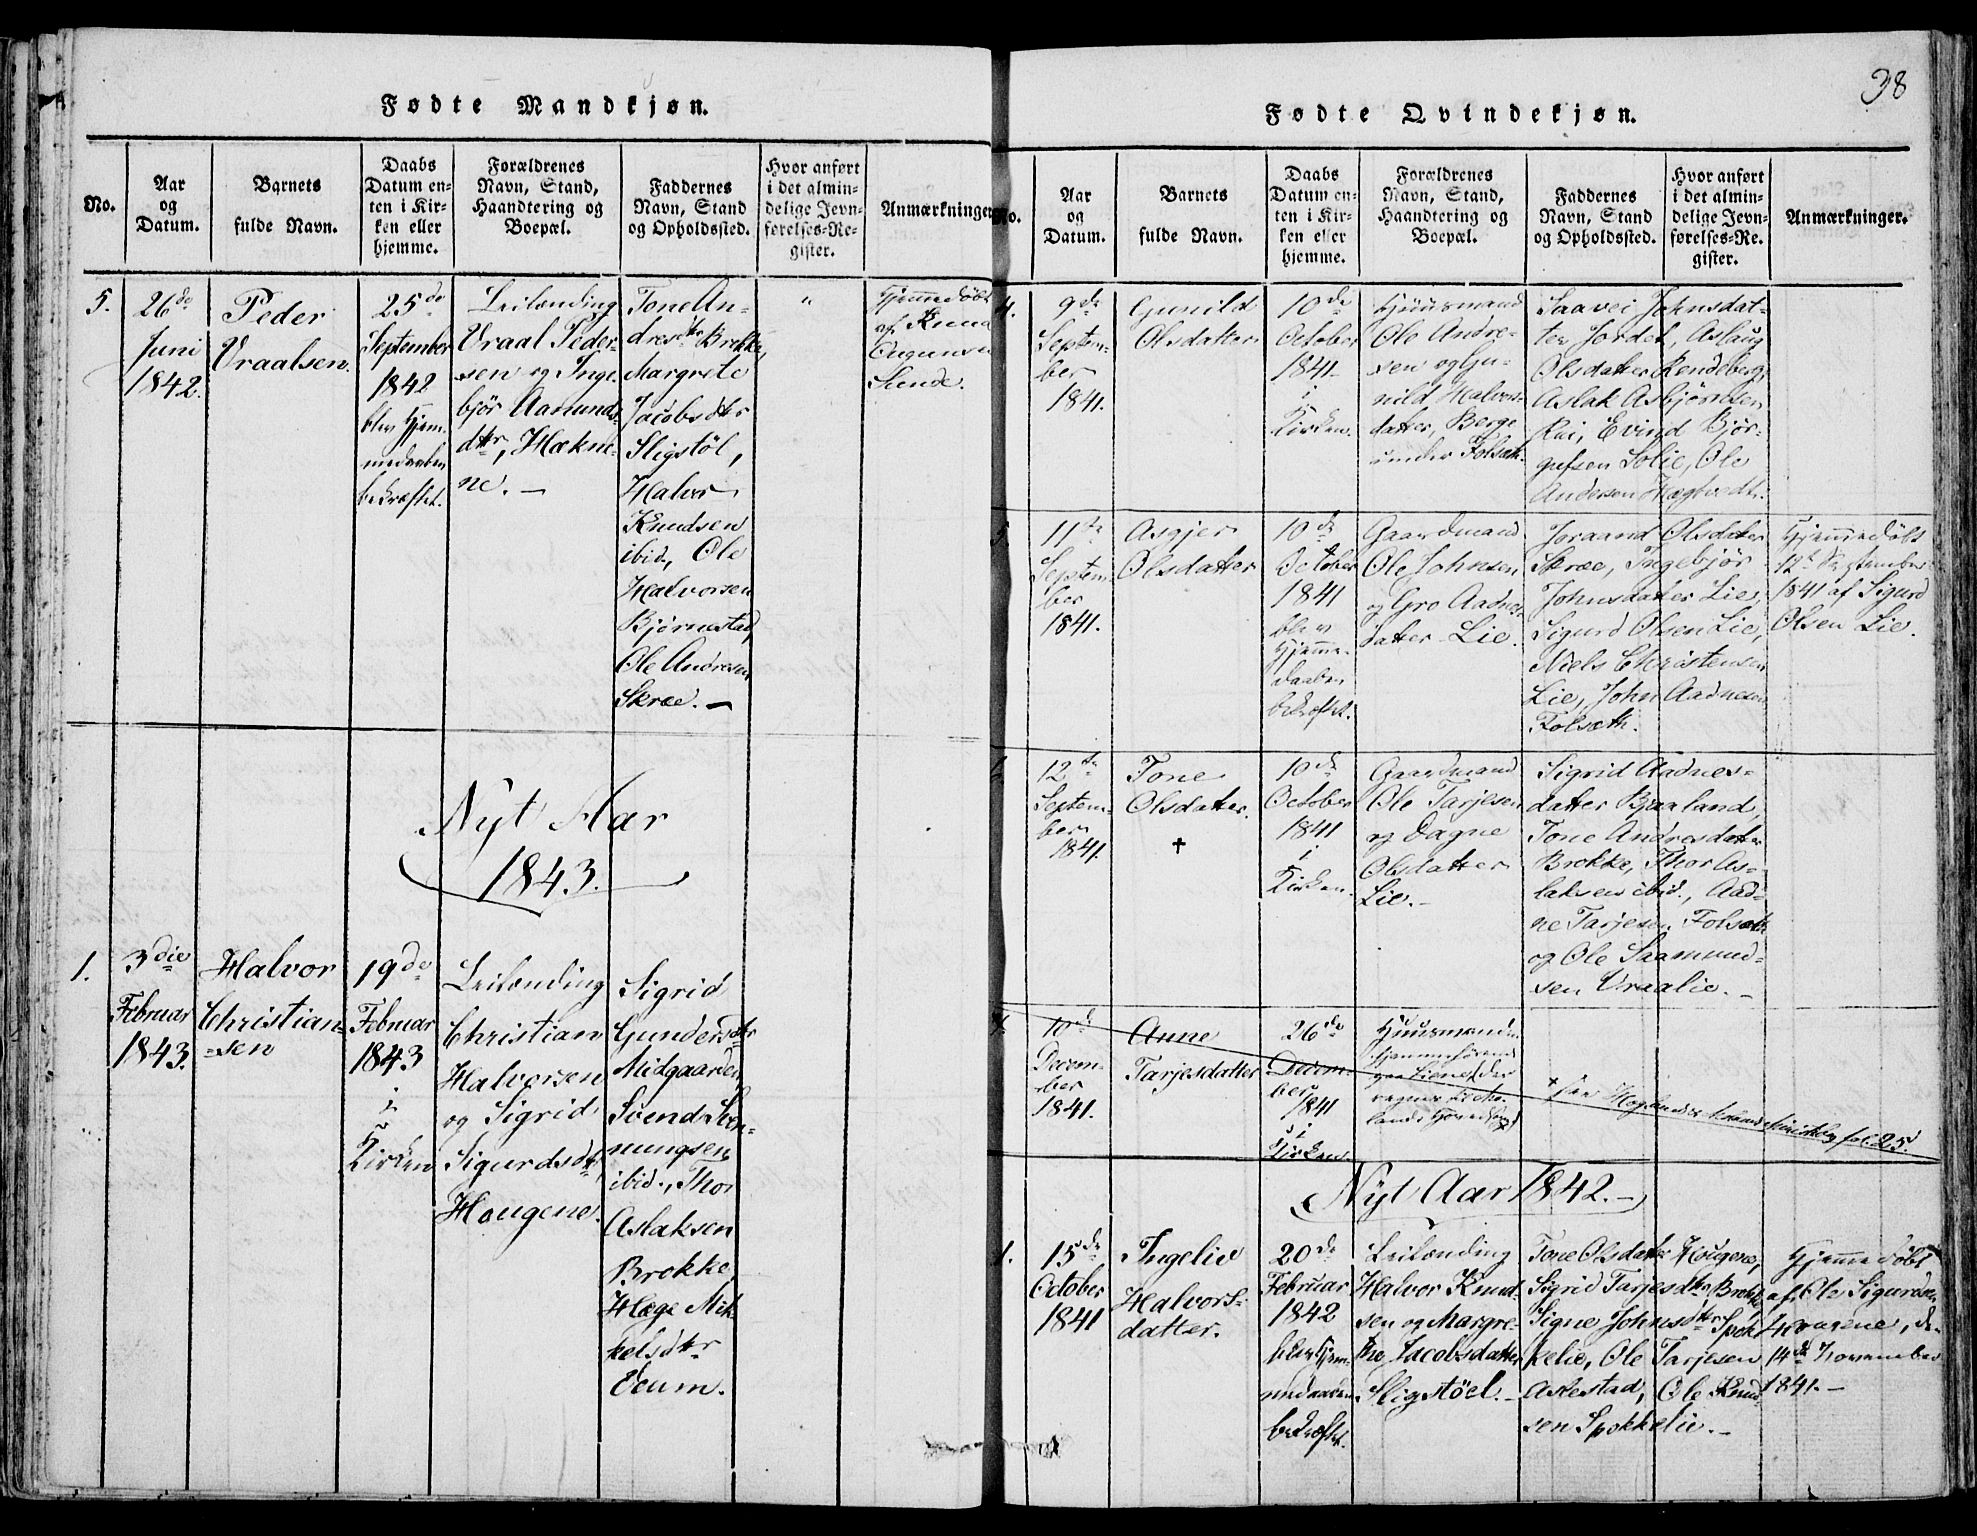 38
Fødte Mandkjøn.
No.
Aar
og
Datum.
Barnets
fulde Navn.
Daabs
Datum en-
ten i Kir-
ken eller
hjemme.
Forældrenes
Navn, Stand,
Haandtering og
Boepæl.
Faddernes
Navn, Stand
og Opholdssted.
Hvor anført
i det almin-
delige Jevn-
førelses-Re-
gister.
Anmærkninger
5.
26de
Juni
1842.
Peder
Vraalsen.
25de
September
1842
blev Hjem-
medaaben
bekræftet.
Leilænding
Vraal Peder-
sen og Inge-
bjør Aamunds-
dtr, Hækne-
ne. —
Tone An-
dresdtr Brokke,
Margrete
Jacobsdtr
Sligstöl,
Halvor
Knudsen
ibid., Ole
Halvorsen
Bjørnestad,
Ole Andresen
Skree. —
"
Hjemmedöbt
af Knud
Sunde.
Nyt Aar
1843.
1.
3die
Februar
1843.
Halvor
Christian-
-sen
19de
Februar
1843
i
Kirken
Leilænding
Christian
Halvorsen
og Sigrid
Sigurdsdtr,
Hougene.
Sigrid
Gundersdtr
Midgaarden
Svend Svn-
nungsen
ibid., Thor
Aslaksen
Brokke
Hæge Mik-
kelsdtr
Veum.
Fødte Qvindekjøn.
No.
Aar
og
Datum.
Barnets
fulde Navn.
Daabs
Datum en-
ten i Kir-
ken eller
hjemme.
Forældrenes
Navn, Stand,
Haandtering og
Boepæl.
Faddernes
Navn, Stand
og Opholdssted.
Hvor anført
i det almin-
delige Jevn-
førelses-Re-
gister.
Anmærkninger.
4.
9de
Septem-
ber
1841.
Gunild
Olsdatter
10de
October
1841
i
Kirken.
Huusmand
Ole Andre-
sen og Gu-
nild Halvors-
datter, Berge
under Folsæth.
Saavei Johnsdat-
ter Jordet, Aslaug
Olsdatter Rendeberg,
Aslak Asbjørnsen
Rui, Evind Bjør-
gufsen Lolie, Ole
Andersen Hægtvedt.
5.
11te
Septem-
ber
1841.
Asgjer
Olsdatter
10de
October
1841
blev
Hjemme-
daaben
bekræftet.
Gaardmand
Ole Johnsen
og Gro Aadnes-
datter Lie.
Joraand Olsdatter
Skree, Ingebjør
Johnsdatter Lie,
Sigurd Olsen Lie,
Niels Christensen
Lie, John Aadnesen
Folsæth.
Hjemmedöbt
12te September
1841 af Sigurd
Olsen Lie.
12te
Septem-
ber
1841.
Tone
Olsdatter.
†
10de
October
1841
i
Kirken.
Gaardmand
Ole Tarjesen
og Dagne
Olsdatter
Lie. —
Sigrid Aadnes-
datter Bjaaland,
Tone Andresdatter
Brokke, Thor As-
laksen ibid., Aad-
ne Tarjesen Folsæth
og Ole Saamund-
sen Vraalie. —
10de
Decem-
ber
1841.
Anne
Tarjesdatter
26de
Decem-
ber
1841
i
Kirken.
Huusmand
fol. 25.
Nyt Aar 1842. —
1.
15de
October
1841
Ingeliv
Halvors-
datter.
20de
Februar
1842
blev Hjem-
medaaben
bekræftet.
Leilænding
Halvor Knud-
sen og Margre-
the Jacobsdatter
Sligstöel. —
Tone Olsdatter Hougene,
Sigrid Tarjesdtr Brokke
Signe Johnsdtr Spok-
kelie, Ole Tarjesen
Askestad, Ole Knud-
sen Spokkelie. —
Hjemmedöbt
af Ole Sigurdsen
Hougene, d.
14de November
1841. —